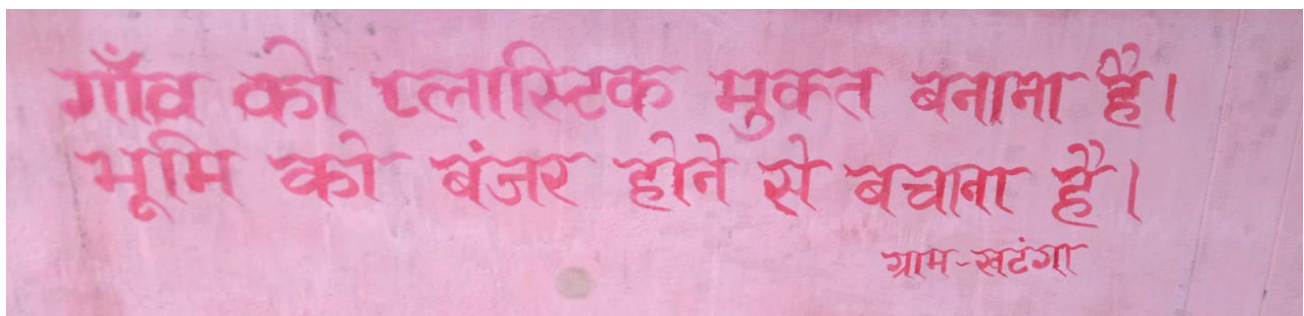 गाँव को प्लास्टिक मुक्त बनाना है।
भूमि को बंजर होने से बचाना है।
ग्राम-खटंगा